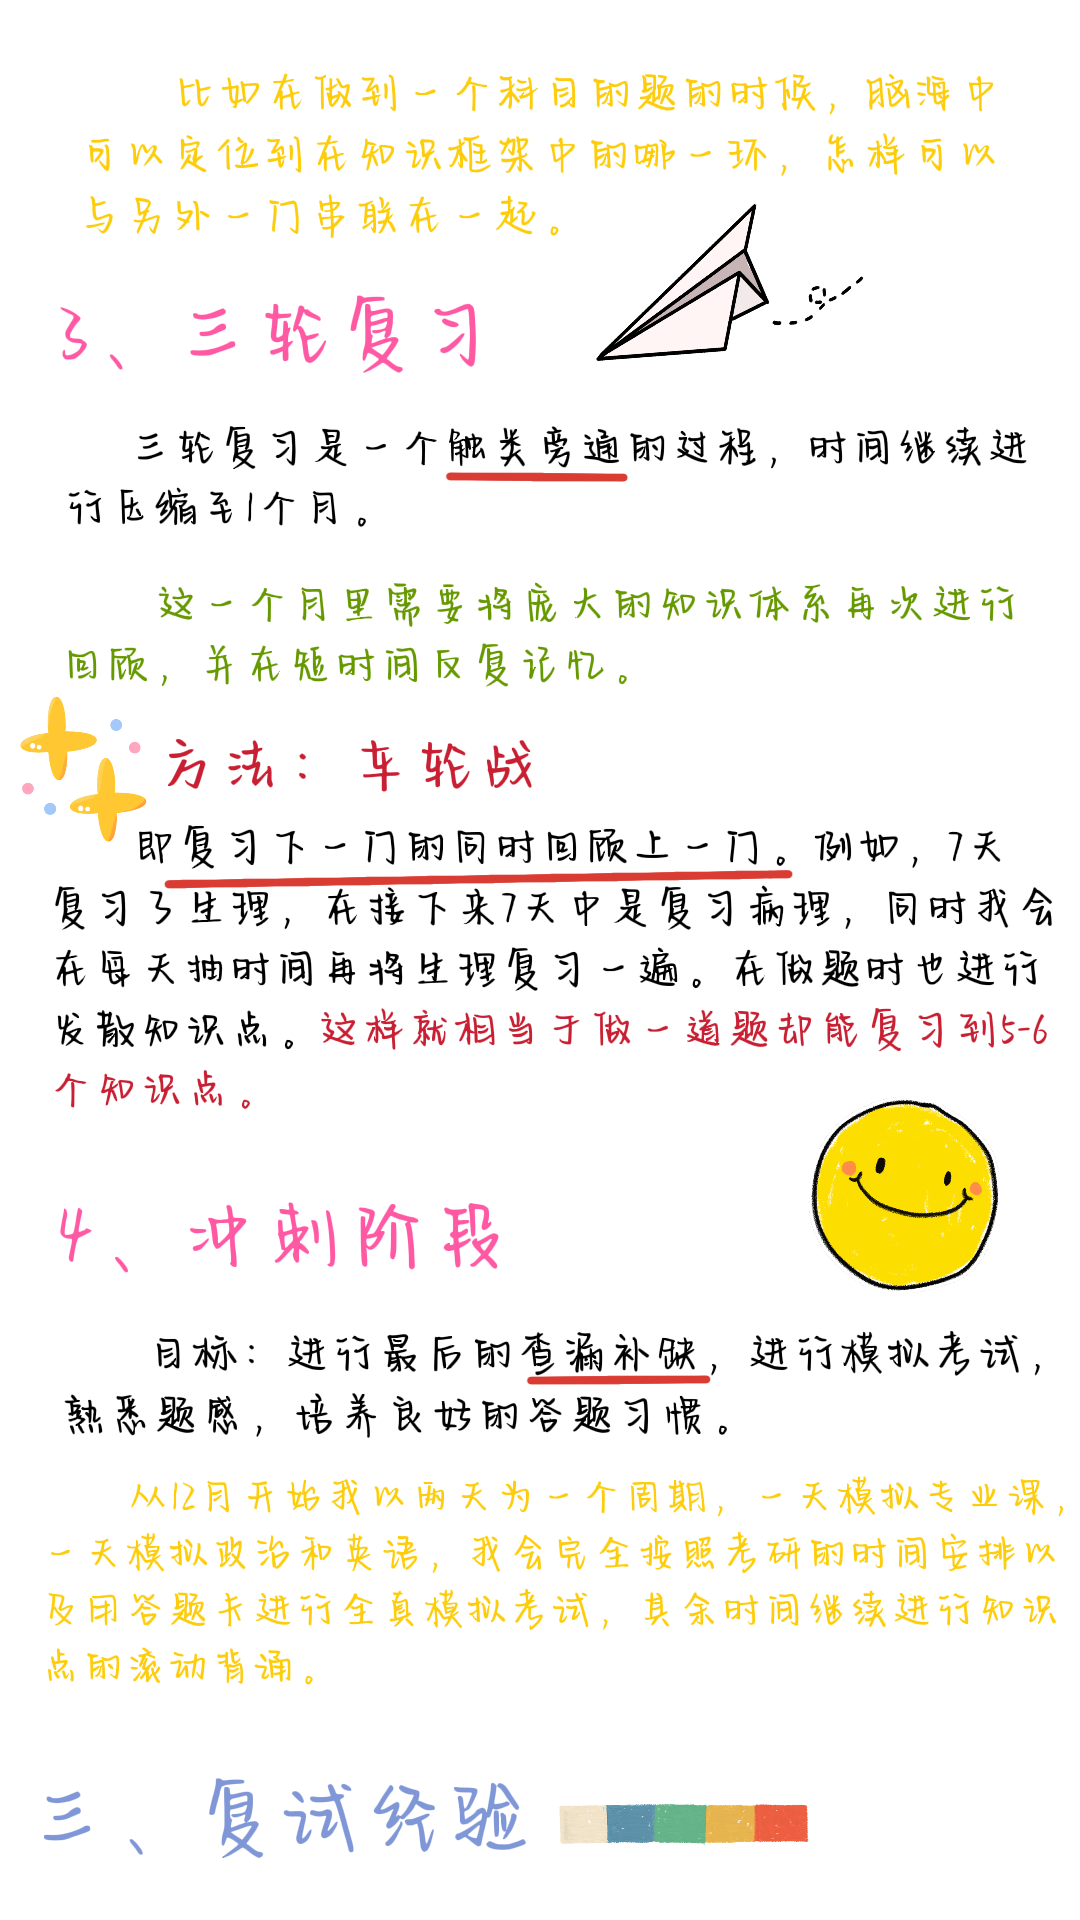 比如在做到一个科目的题的时候，脑海中
可以定位到在知识框架中的哪一环，怎样可以
与另外一门串联在一起。
3、三轮复习
三轮复习是一个触类旁通的过程，时间继续进
行压缩至1个月。
这一个月里需要将庞大的知识体系再次进行
回顾，并在短时间反复记忆。
方法：车轮战
即复习下一门的同时回顾上一门。例如，7天
复习了生理，在接下来7天中是复习病理，同时我会
在每天抽时间再将生理复习一遍。在做题时也进行
发散知识点。这样就相当于做一道题却能复习到5-6
个知识点。
4、冲刺阶段
目标：进行最后的查漏补缺，进行模拟考试，
熟悉题感，培养良好的答题习惯。
从12月开始我以两天为一个周期，一天模拟专业课，
一天模拟政治和英语，我会完全按照考研的时间安排以
及用答题卡进行全真模拟考试，其余时间继续进行知识
点的滚动背诵。
三、复试经验